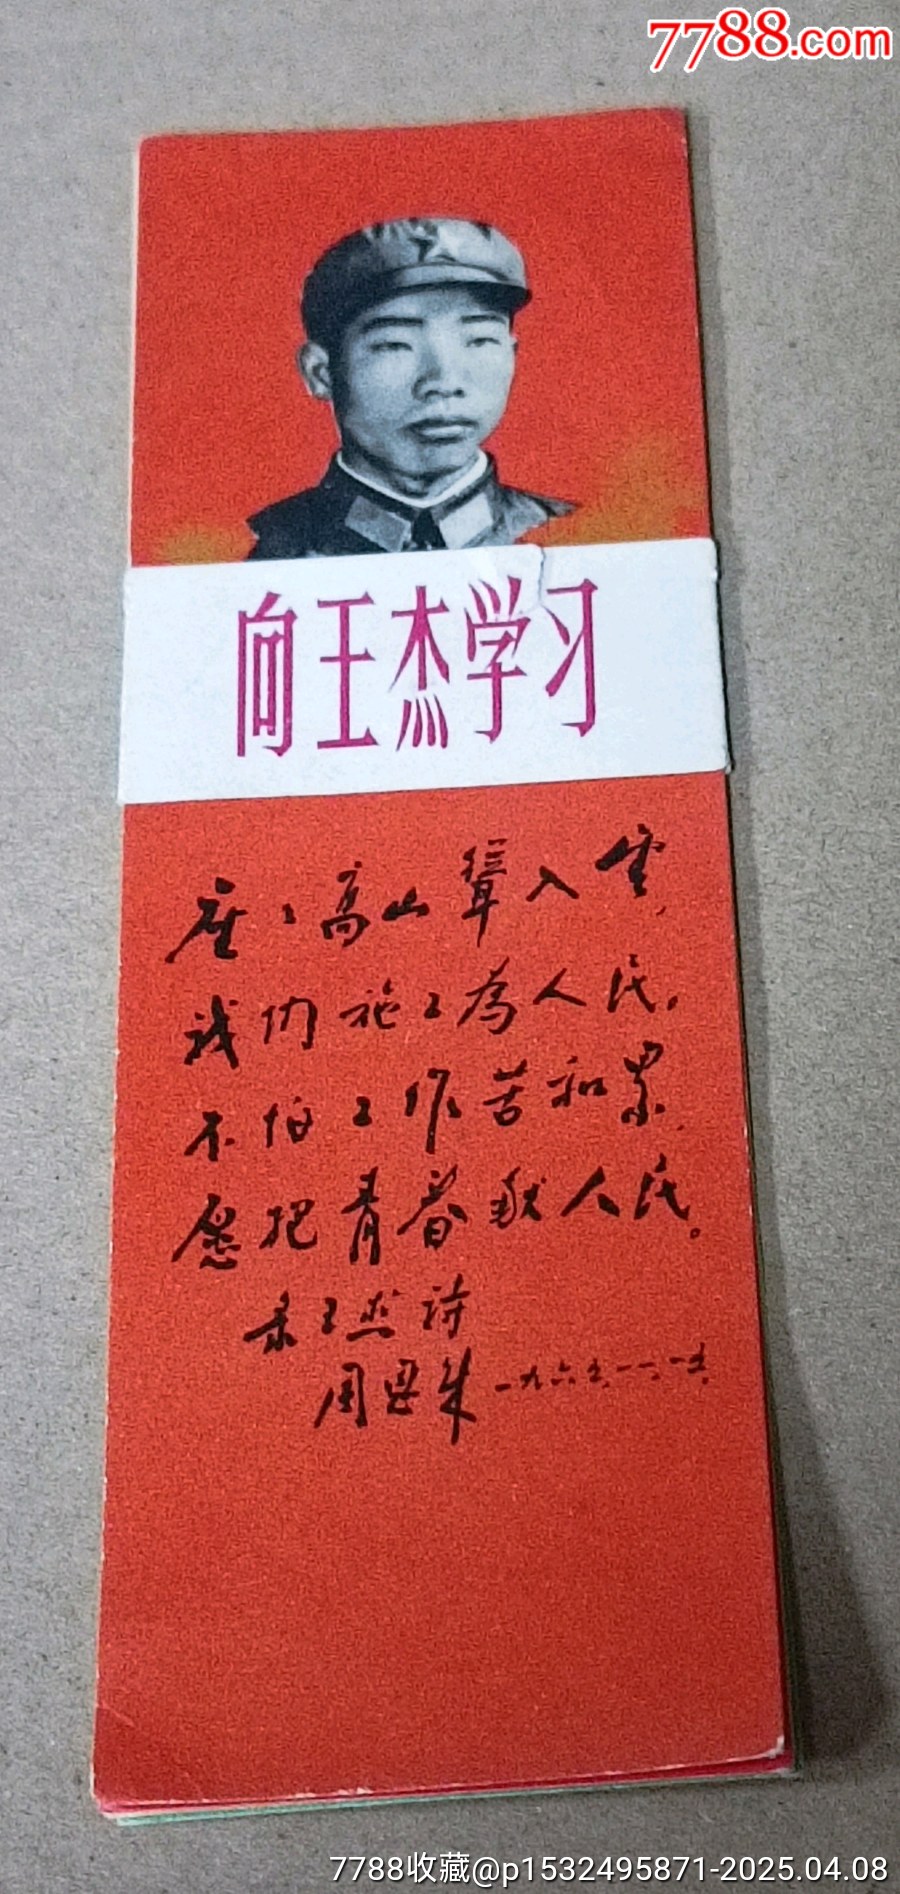 7788.com
向王杰学习
座々高山聳入雲,
我们施工为人民。
不怕工作苦和累,
愿把青春献人民。
录王杰诗
周恩来 一九六五.一一.一五.
7788收藏@p1532495871-2025.04.08